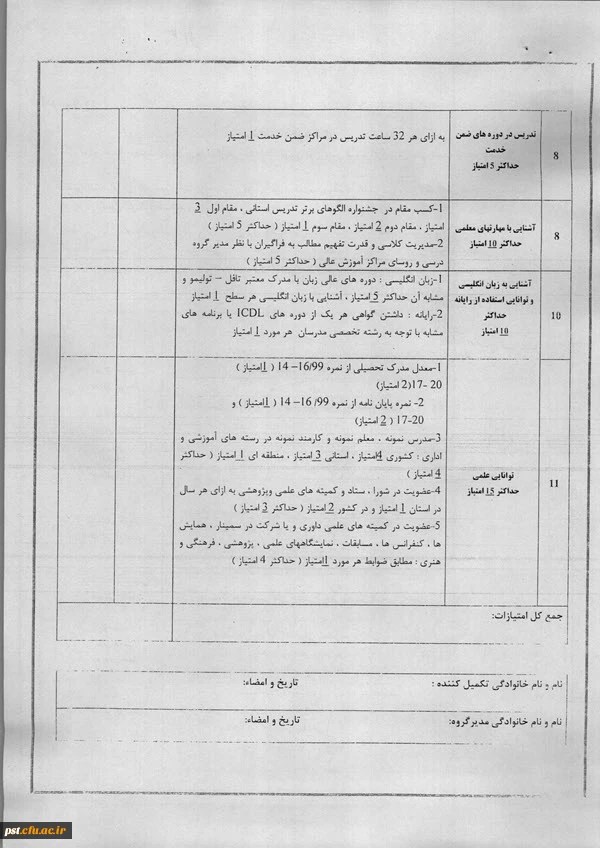 8
تدریس در دوره های ضمن
خدمت
حداکثر 5 امتیاز
به ازای هر 32 ساعت تدریس در مراکز ضمن خدمت 1 امتیاز
8
آشنایی با مهارتهای معلمی
حداکثر 10 امتیاز
1-کسب مقام در جشنواره الگوهای برتر تدریس استانی ، مقام اول 3
امتیاز ، مقام دوم 2 امتیاز ، مقام سوم 1 امتیاز ( حداکثر 5 امتیاز )
2-مدیریت کلاسی و قدرت تفهیم مطالب به فراگیران با نظر مدیر گروه
درسی و روسای مراکز آموزش عالی ( حداکثر 5 امتیاز )
10
آشنایی به زبان انگلیسی
و توانایی استفاده از رایانه
حداکثر
10 امتیاز
1-زبان انگلیسی : دوره های عالی زبان با مدرک معتبر تافل – تولیمو و
مشابه آن حداکثر 5 امتیاز ، آشنایی با زبان انگلیسی هر سطح 1 امتیاز
2-رایانه : داشتن گواهی هر یک از دوره های ICDL یا برنامه های
مشابه با توجه به رشته تخصصی مدرسان هر مورد 1 امتیاز
11
توانایی علمی
حداکثر 15 امتیاز
1-معدل مدرک تحصیلی از نمره 16/99– 14 ( 1امتیاز )
20 -17(2 امتیاز)
2- نمره پایان نامه از نمره 16/99 – 14 ( 1امتیاز ) و
17-20 ( 2 امتیاز)
3-مدرس نمونه ، معلم نمونه و کارمند نمونه در رسته های آموزشی و
اداری : کشوری 4امتیاز ، استانی 3 امتیاز ، منطقه ای 1 امتیاز ( حداکثر
4 امتیاز )
4-عضویت در شورا ، ستاد و کمیته های علمی وپژوهشی به ازای هر سال
در استان 1 امتیاز و در کشور 2 امتیاز ( حداکثر 3 امتیاز )
5-عضویت در کمیته های علمی داوری و یا شرکت در سمینار ، همایش
ها ، کنفرانس ها ، مسابقات ، نمایشگاههای علمی ، پژوهشی ، فرهنگی و
هنری : مطابق ضوابط هر مورد 1امتیاز ( حداکثر 4 امتیاز )
جمع کل امتیازات:
نام و نام خانوادگی تکمیل کننده : تاریخ و امضاء:
نام و نام خانوادگی مدیرگروه: تاریخ و امضاء:
pst.cfu.ac.ir